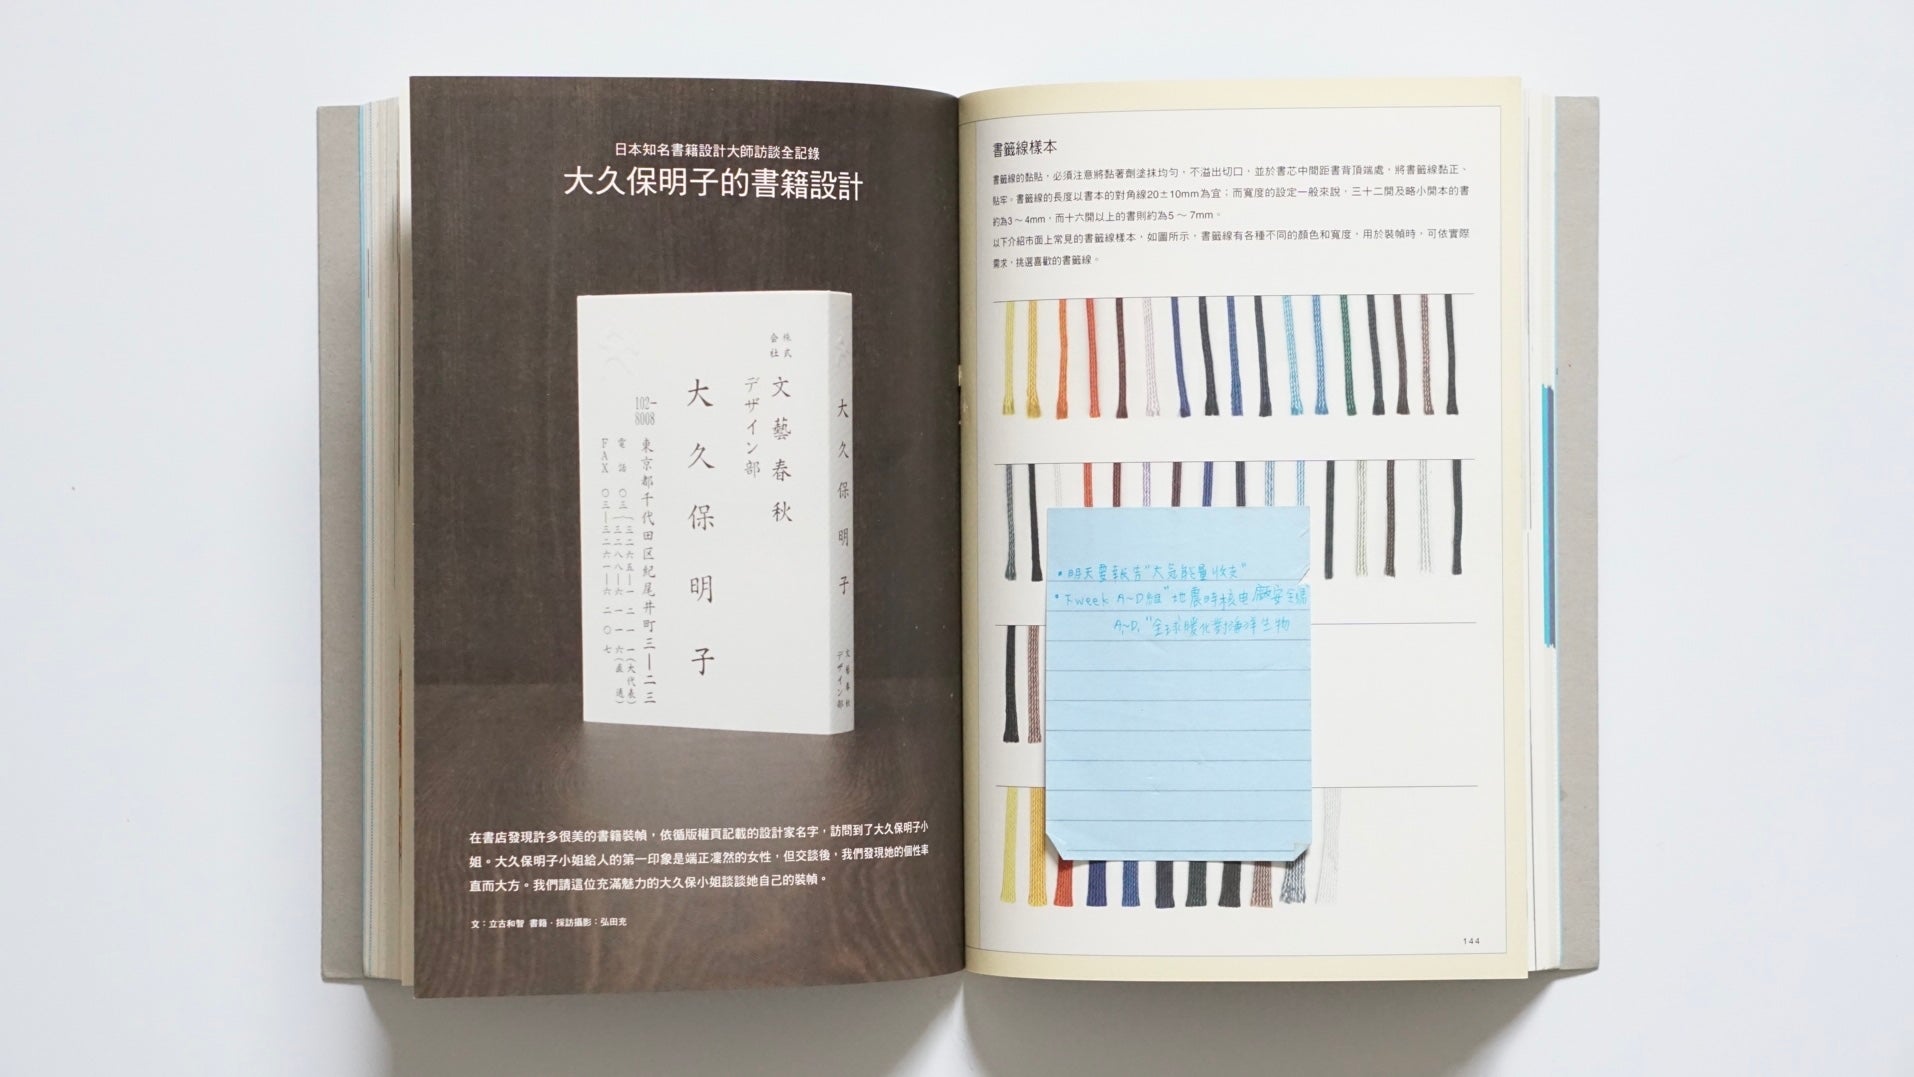 日本知名書籍設計大師訪談全記錄
大久保明子的書籍設計
株式
会社
文藝春秋
デザイン部
大久保明子
102-
8008
東京都千代田区紀尾井町三―二三
電話 〇三(三二六五)一二一一(大代表)
〇三(三二八八)六一一六(直通)
FAX 〇三―三二六一―六二〇七
大久保明子
文藝春秋
デザイン部
在書店發現許多很美的書籍裝幀,依循版權頁記載的設計家名字,訪問到了大久保明子小
姐。大久保明子小姐給人的第一印象是端正凜然的女性,但交談後,我們發現她的個性率
直而大方。我們請這位充滿魅力的大久保小姐談談她自己的裝幀。
文:立古和智 書籍・採訪攝影:弘田充
書籤線樣本
書籤線的黏貼,必須注意將黏著劑塗抹均勻,不溢出切口,並於書芯中間距書背頂端處,將書籤線黏正、
貼牢。書籤線的長度以書本的對角線20±10mm為宜;而寬度的設定一般來說,三十二開及略小開本的書
約為3～4mm,而十六開以上的書則約為5～7mm。
以下介紹市面上常見的書籤線樣本,如圖所示,書籤線有各種不同的顏色和寬度,用於裝幀時,可依實際
需求,挑選喜歡的書籤線。
・明天要報告"大氣能量收支"
・下week A~D組"地震時核电廠安全
A,~D,"全球暖化對海洋生物
144